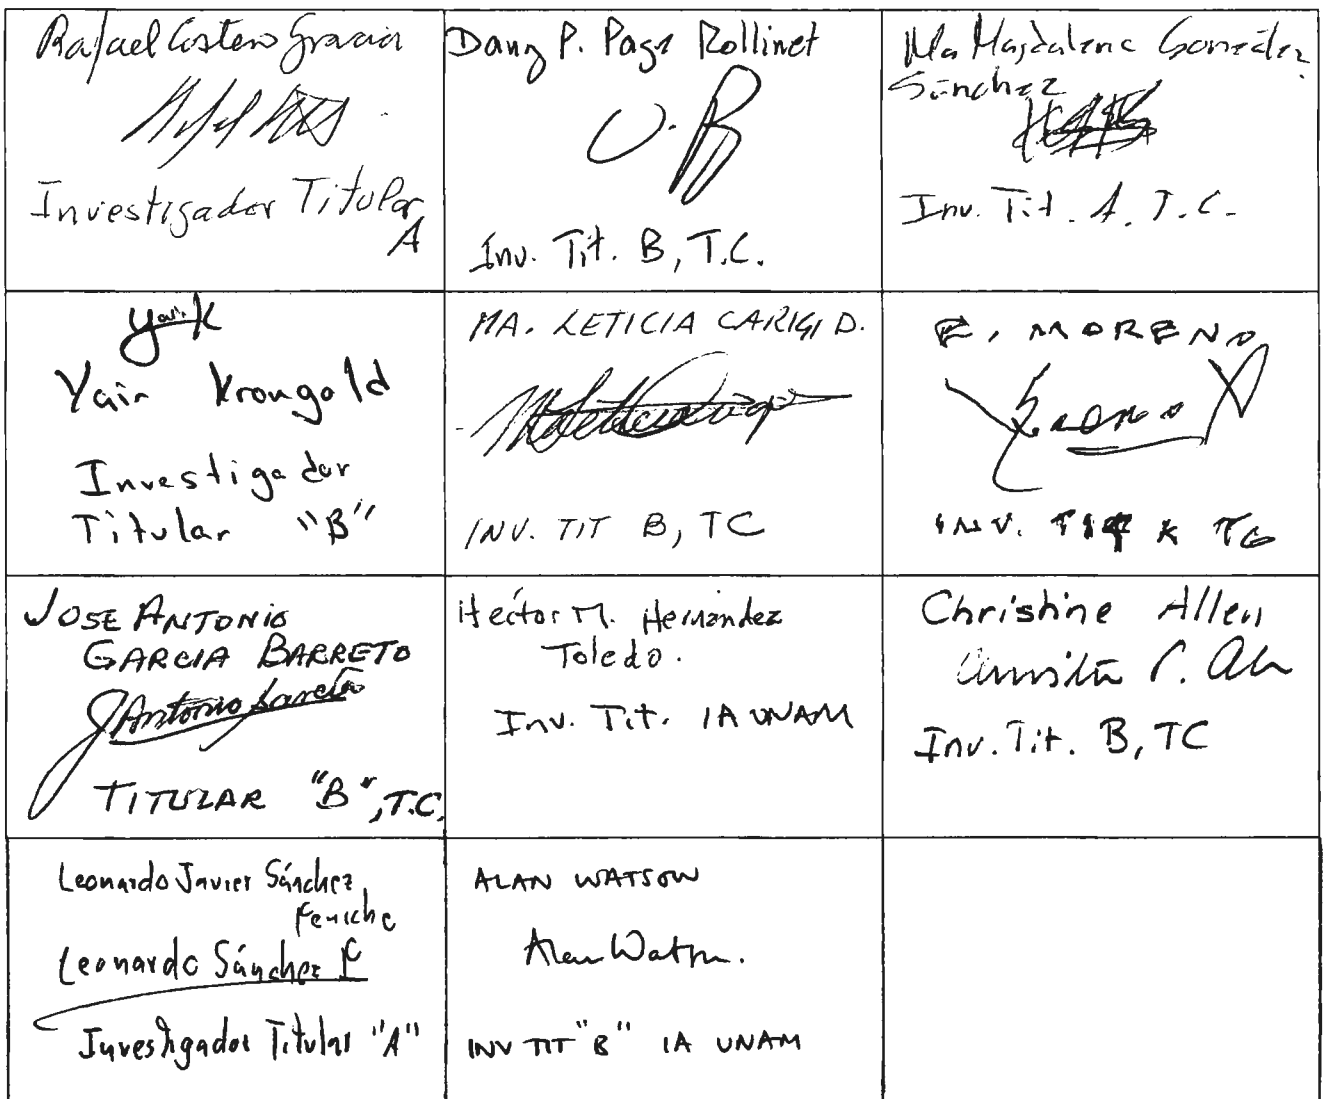 Rafael Costero Gracia
Investigador Titular
A
Dany P. Page Rollinet
Inv. Tit. B, T.C.
Ma Magdalena González
Sánchez
Inv. Tit. A. T.C.
Yair K
Yair Krongold
Investigador
Titular "B"
MA. LETICIA CARIGI D.
INV. TIT B, TC
E. MORENO
Moreno
INV. TIT TC
JOSE ANTONIO
GARCIA BARRETO
J Antonio García
TITULAR "B", T.C.
Hector M. Hernández
Toledo.
Inv. Tit. IA UNAM
Christine Allen
Christine C. All
Inv. Tit. B, TC
Leonardo Javier Sánchez
Peniche
Leonardo Sánchez P
Investigador Titular "A"
ALAN WATSON
Alan Watson.
INV TIT "B" IA UNAM